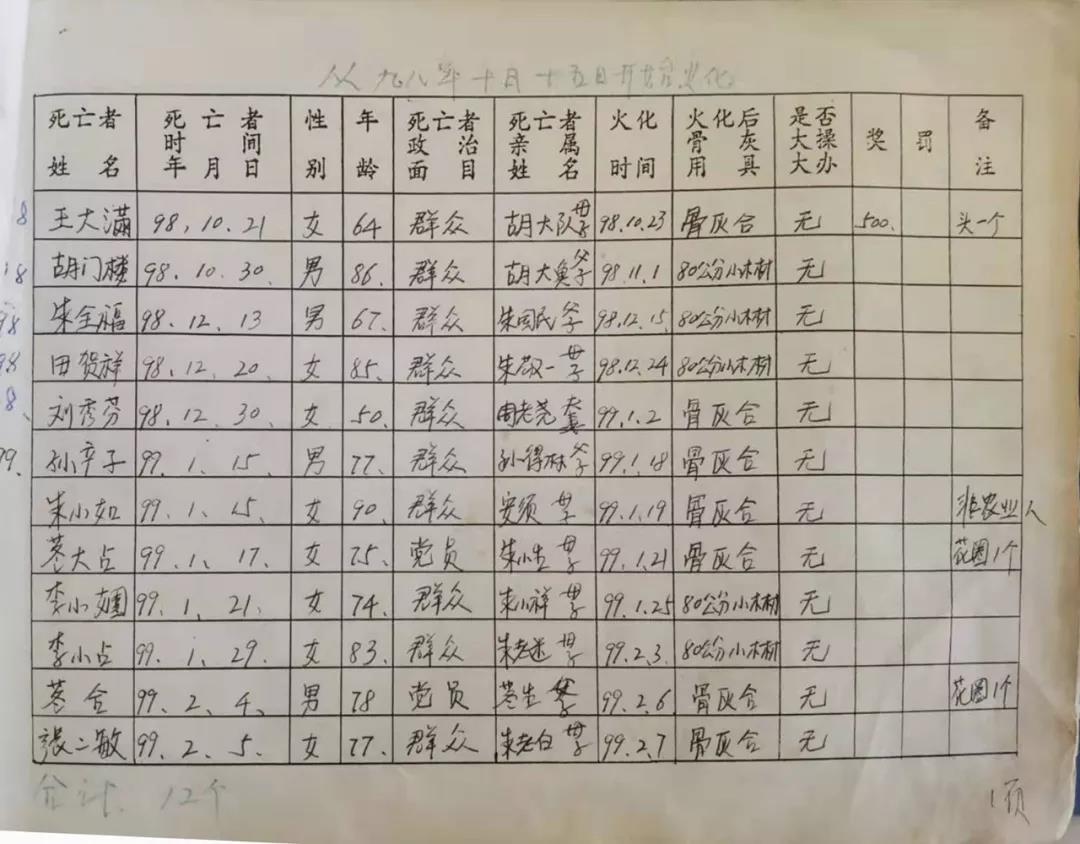 从九八年十月十五日开始火化
死亡者姓名 死亡者时间年月日 性别 年龄 死亡者政治面目 死亡者亲属姓名 火化时间 火化后骨灰用具 是否大操大办 奖 罚 备注
8 王大满 98.10.21 女 64 群众 胡大队 母子 98.10.23 骨灰合 无 500. 头一个
98 胡门楼 98.10.30. 男 86 群众 胡大臭 父子 98.11.1 80公分小木材 无
98 朱全福 98.12.13 男 67. 群众 朱国民 父子 98.12.15 80公分小木材 无
98 田贺祥 98.12.20. 女 85. 群众 朱敬一 母子 98.12.24 80公分小木材 无
8. 刘秀芬 98.12.30 女 50. 群众 周老尧 99.1.2 骨灰合 无
99. 孙辛子 99.1.15. 男 77. 群众 孙得林 父子 99.1.18 骨灰合 无
朱小如 99.1.15. 女 90. 群众 安须 母子 99.1.19 骨灰合 无 非农业人
大占 99.1.17. 女 75. 党员 朱小生 母子 99.1.21 骨灰合 无 花圈1个
李小 99.1.21. 女 74. 群众 朱小祥 母子 99.1.25 80公分小木材 无
李小占 99.1.29. 女 83. 群众 朱老迷 母子 99.2.3. 80公分小木材 无
合 99.2.4. 男 78 党员 生 父子 99.2.6 骨灰合 无 花圈1个
张二敏 99.2.5. 女 77. 群众 朱老白 母子 99.2.7 骨灰合 无
合计. 12个
1页